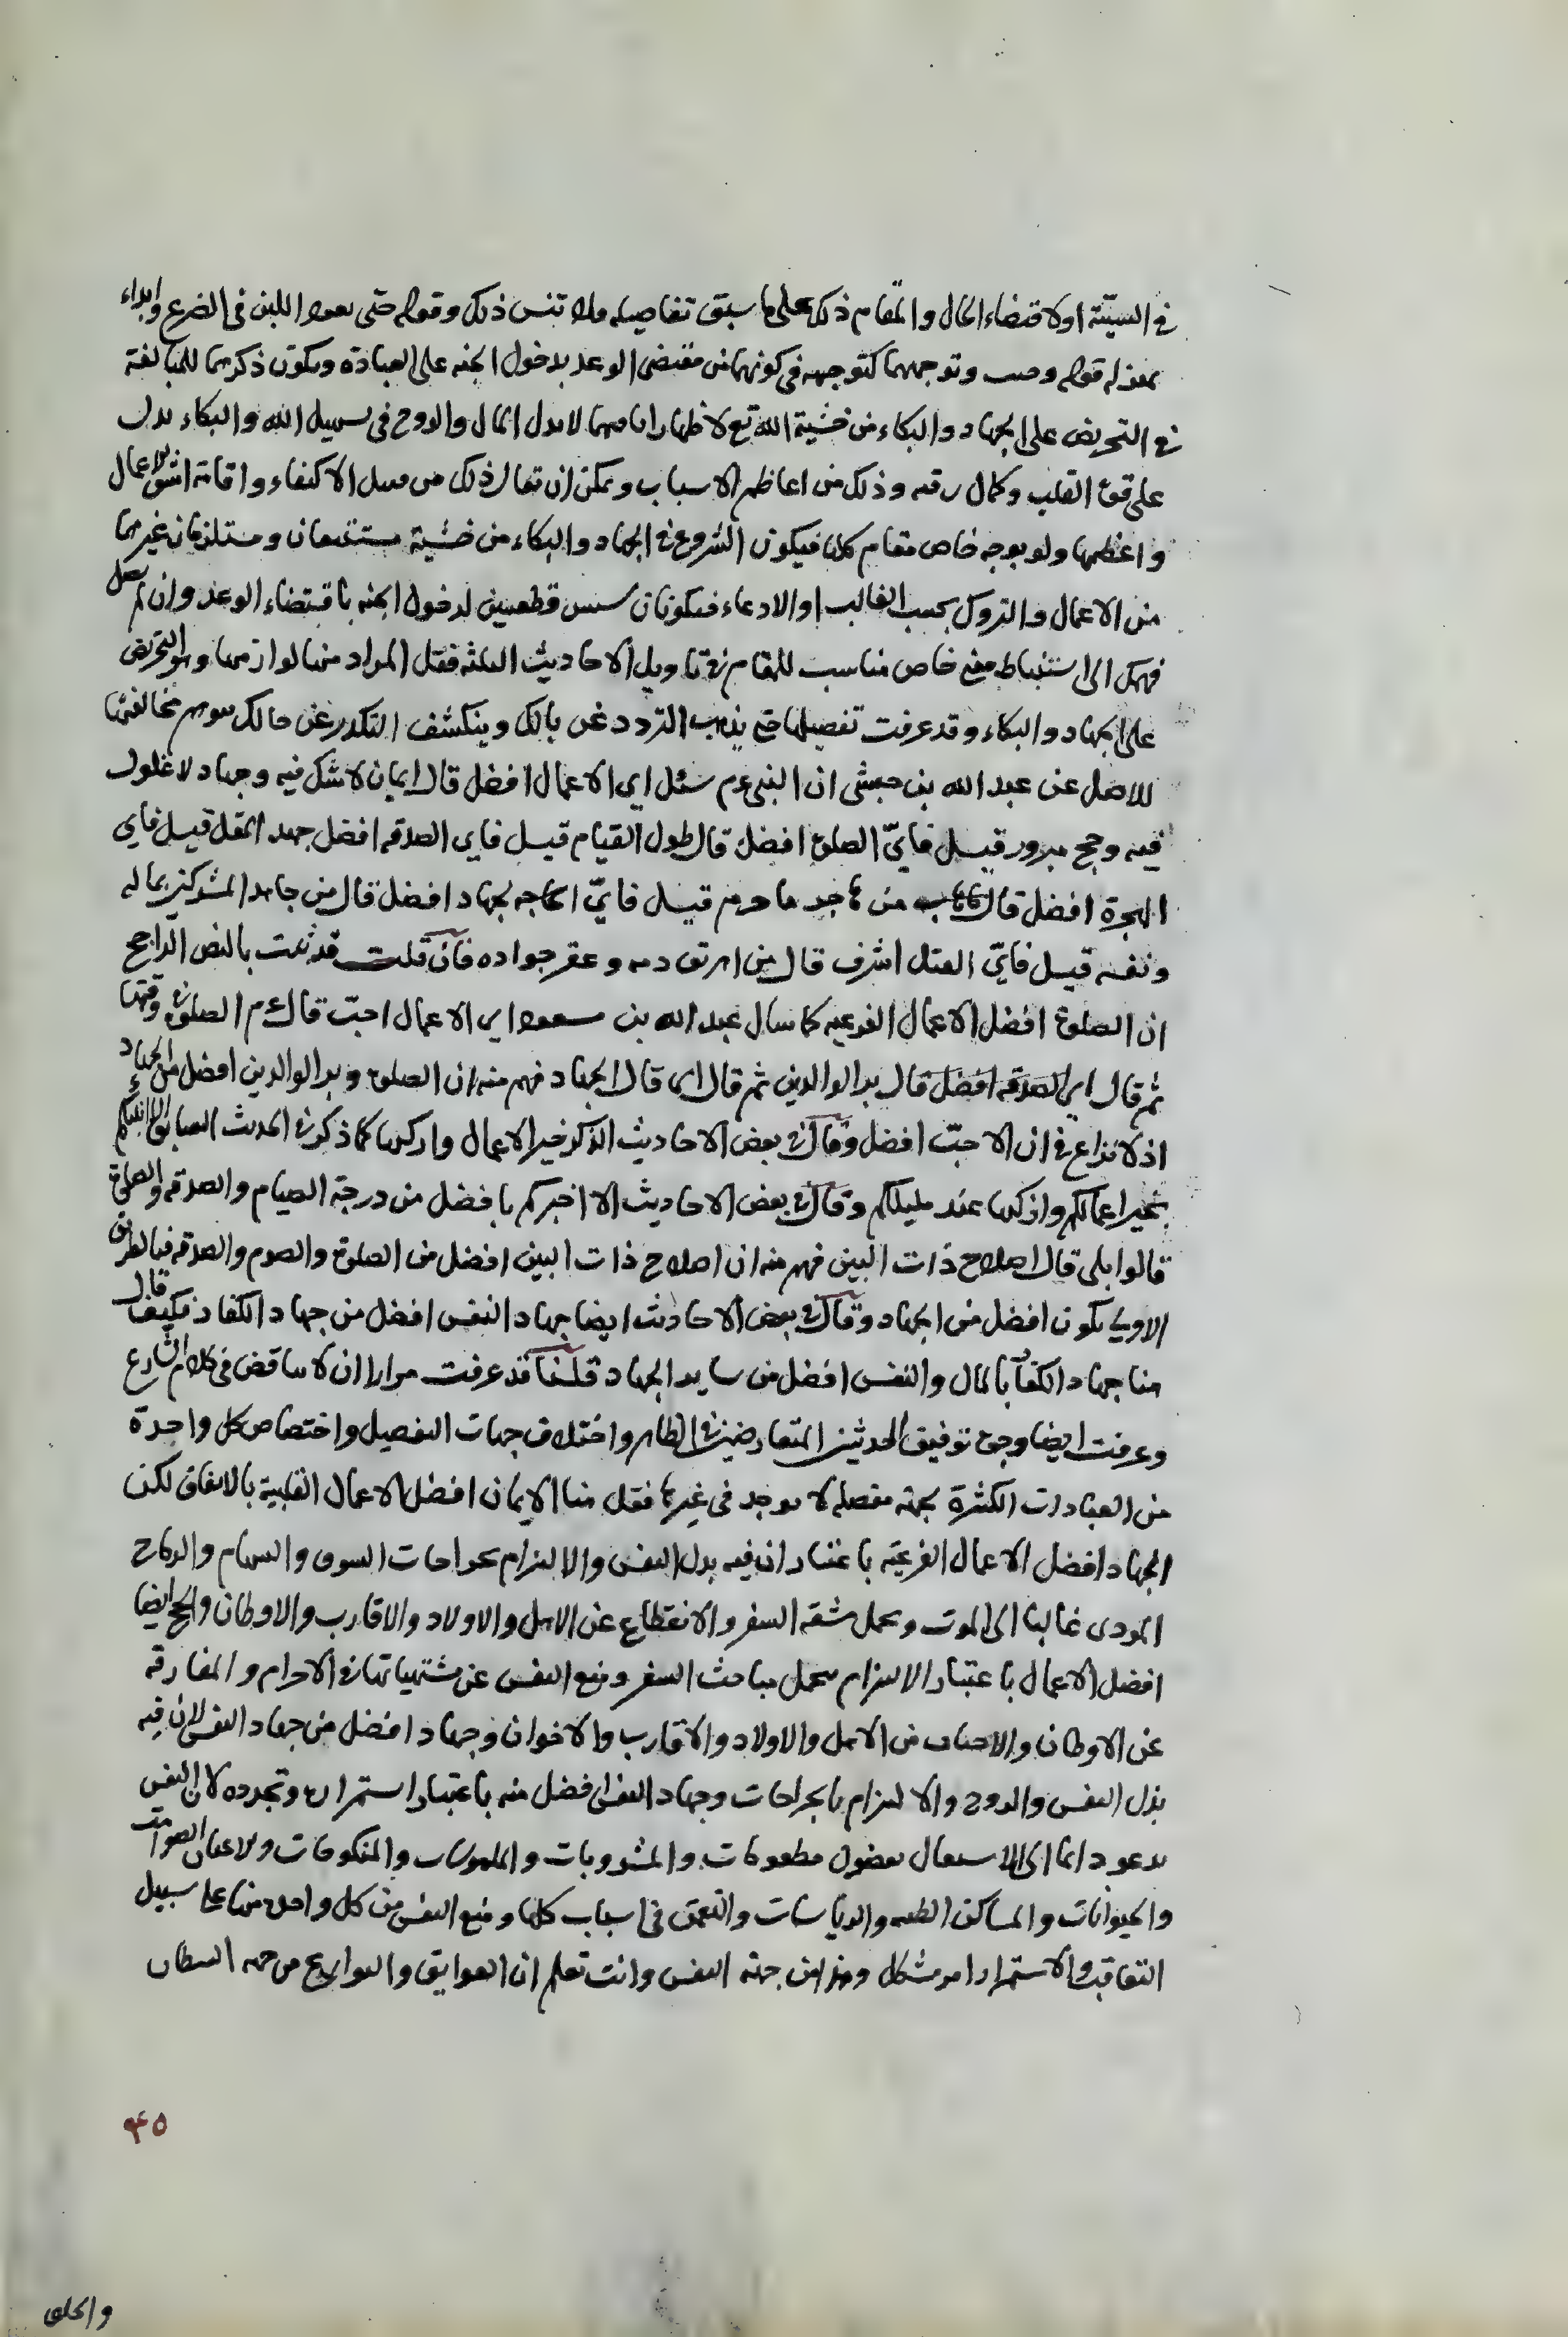 في السيئة اولاقتضاء الحال والمقام ذلك على ما سبق تفاصيله فلا تنس ذلك وقوله حتى يعود اللبن في الضرع وابداء
بمنزلة قوله وتوجيهها كتوجيهه في كونهما من مقتضى الوعد بدخول الجنه على العبادة ويكون ذكرهما للمبالغة
في التحريض على الجهاد والبكاء من خشية الله تع لاظهار لا بدل المال والروح في سبيل الله والبكاء يدل
على قوة القلب وكمال رقته وذلك من اعاظم الاسباب ويمكن ان يقال ذلك من قبيل الاكتفاء واقامة اشق الاعمال
واعظمها ولو بوجه خاص مقام كلها فيكون الشروع في الجهاد والبكاء من خشية مستتبعان ومستلزمان غيرهما
من الاعمال والتروك بحسب الغالب او الادعاء فيكونان سببين قطعيين لدخول الجنه باقتضاء الوعد وان لم
الى استنباط معنى خاص مناسب للمقام في تاويل الاحاديث الثلثه فقل المراد منها لوازمها وهو التحريض
على الجهاد والبكاء وقد عرفت تفصيلها حتى يذهب التردد عن بالك وينكشف التكدر عن حالك مخالفتها
للاصل عن عبد الله بن حبشى ان النبى عم سئل اى الاعمال افضل قال ايمان لا شك فيه وجهاد لا غلول
فيه وحج مبرور قيل فاىّ الصلوة افضل قال طول القيام قيل فاى الصدقه افضل جهد المقل قيل فاى
الهجرة افضل قال من هاجر ما حرم قيل فاىّ الجهاد افضل قال من جاهد المشركين بماله
ونفسه قيل فاىّ القتل اشرف قال من اهرق دمه وعقر جواده فان قلت قد ثبت بالنص الراجح
ان الصلوة افضل الاعمال الفرعيه كما سال عبد الله بن مسعود اى الاعمال احبّ قال عم الصلوة في وقتها
ثم قال اى الصدقه افضل قال بر الوالدين ثم قال اى قال الجهاد فهم منه ان الصلوة وبر الوالدين افضل من الجهاد
اذ لا نزاع في ان الاحبّ افضل وقال في بعض الاحاديث الذكر خير الاعمال وازكيها كما ذكر في الحديث السابق الا انبئكم
بخير اعمالكم وازكيها عند مليككم وقال في بعض الاحاديث الا اخبركم بافضل من درجة الصيام والصدقه والصلوة
قالوا بلى قال اصلاح ذات البين فهم منه ان اصلاح ذات البين افضل من الصلوة والصوم والصدقه فبالطريق
الاولى يكون افضل من الجهاد وقال في بعض الاحاديث ايضا جهاد النفس افضل من جهاد الكفار فكيف قال
هنا جهاد الكفار بالمال والنفس افضل من ساير الجهاد قلنا قد عرفت مرارا ان لا تناقض في كلام الشارع
وعرفت ايضا وجوه توفيق الحديثين المتعارضين في الظاهر واختلاف جهات التفصيل واختصاص كل واحدة
من العبادات الكثيرة بجهة مفصله لا يوجد في غيرها فقل هنا الايمان افضل الاعمال القلبية بالاتفاق لكن
الجهاد افضل الاعمال الفرعيّه باعتبار ان فيه بذل النفس والالتزام بجراحات السيوف والسهام والرماح
المودى غالبا الى الموت وتحمل مشقه السفر والانقطاع عن الاهل والاولاد والاقارب والاوطان والحج ايضا
افضل الاعمال باعتبار الالتزام بتحمل مباحث السفر ومنع النفس عن مشتهياتها في الاحرام والمفارقه
عن الاوطان والاحباب من الاهل والاولاد والاقارب والاخوان وجهاد افضل من جهاد النفس لان فيه
بذل النفس والروح والالتزام بالجراحات وجهاد النفس افضل منه باعتبار استمراره وتجدده لان النفس
يدعو دائما الى الاستعمال بفضول مطعومات والمشروبات والملبوسات والمنكوحات
والحيوانات والمساكن والرياسات والتعمق في اسباب كلها ومنع النفس من كل واحدة منها على سبيل
التعاقب والاستمرار امر مشكل وهذا من جهة النفس وانت تعلم ان العوايق من جهة الشيطان
٤٥